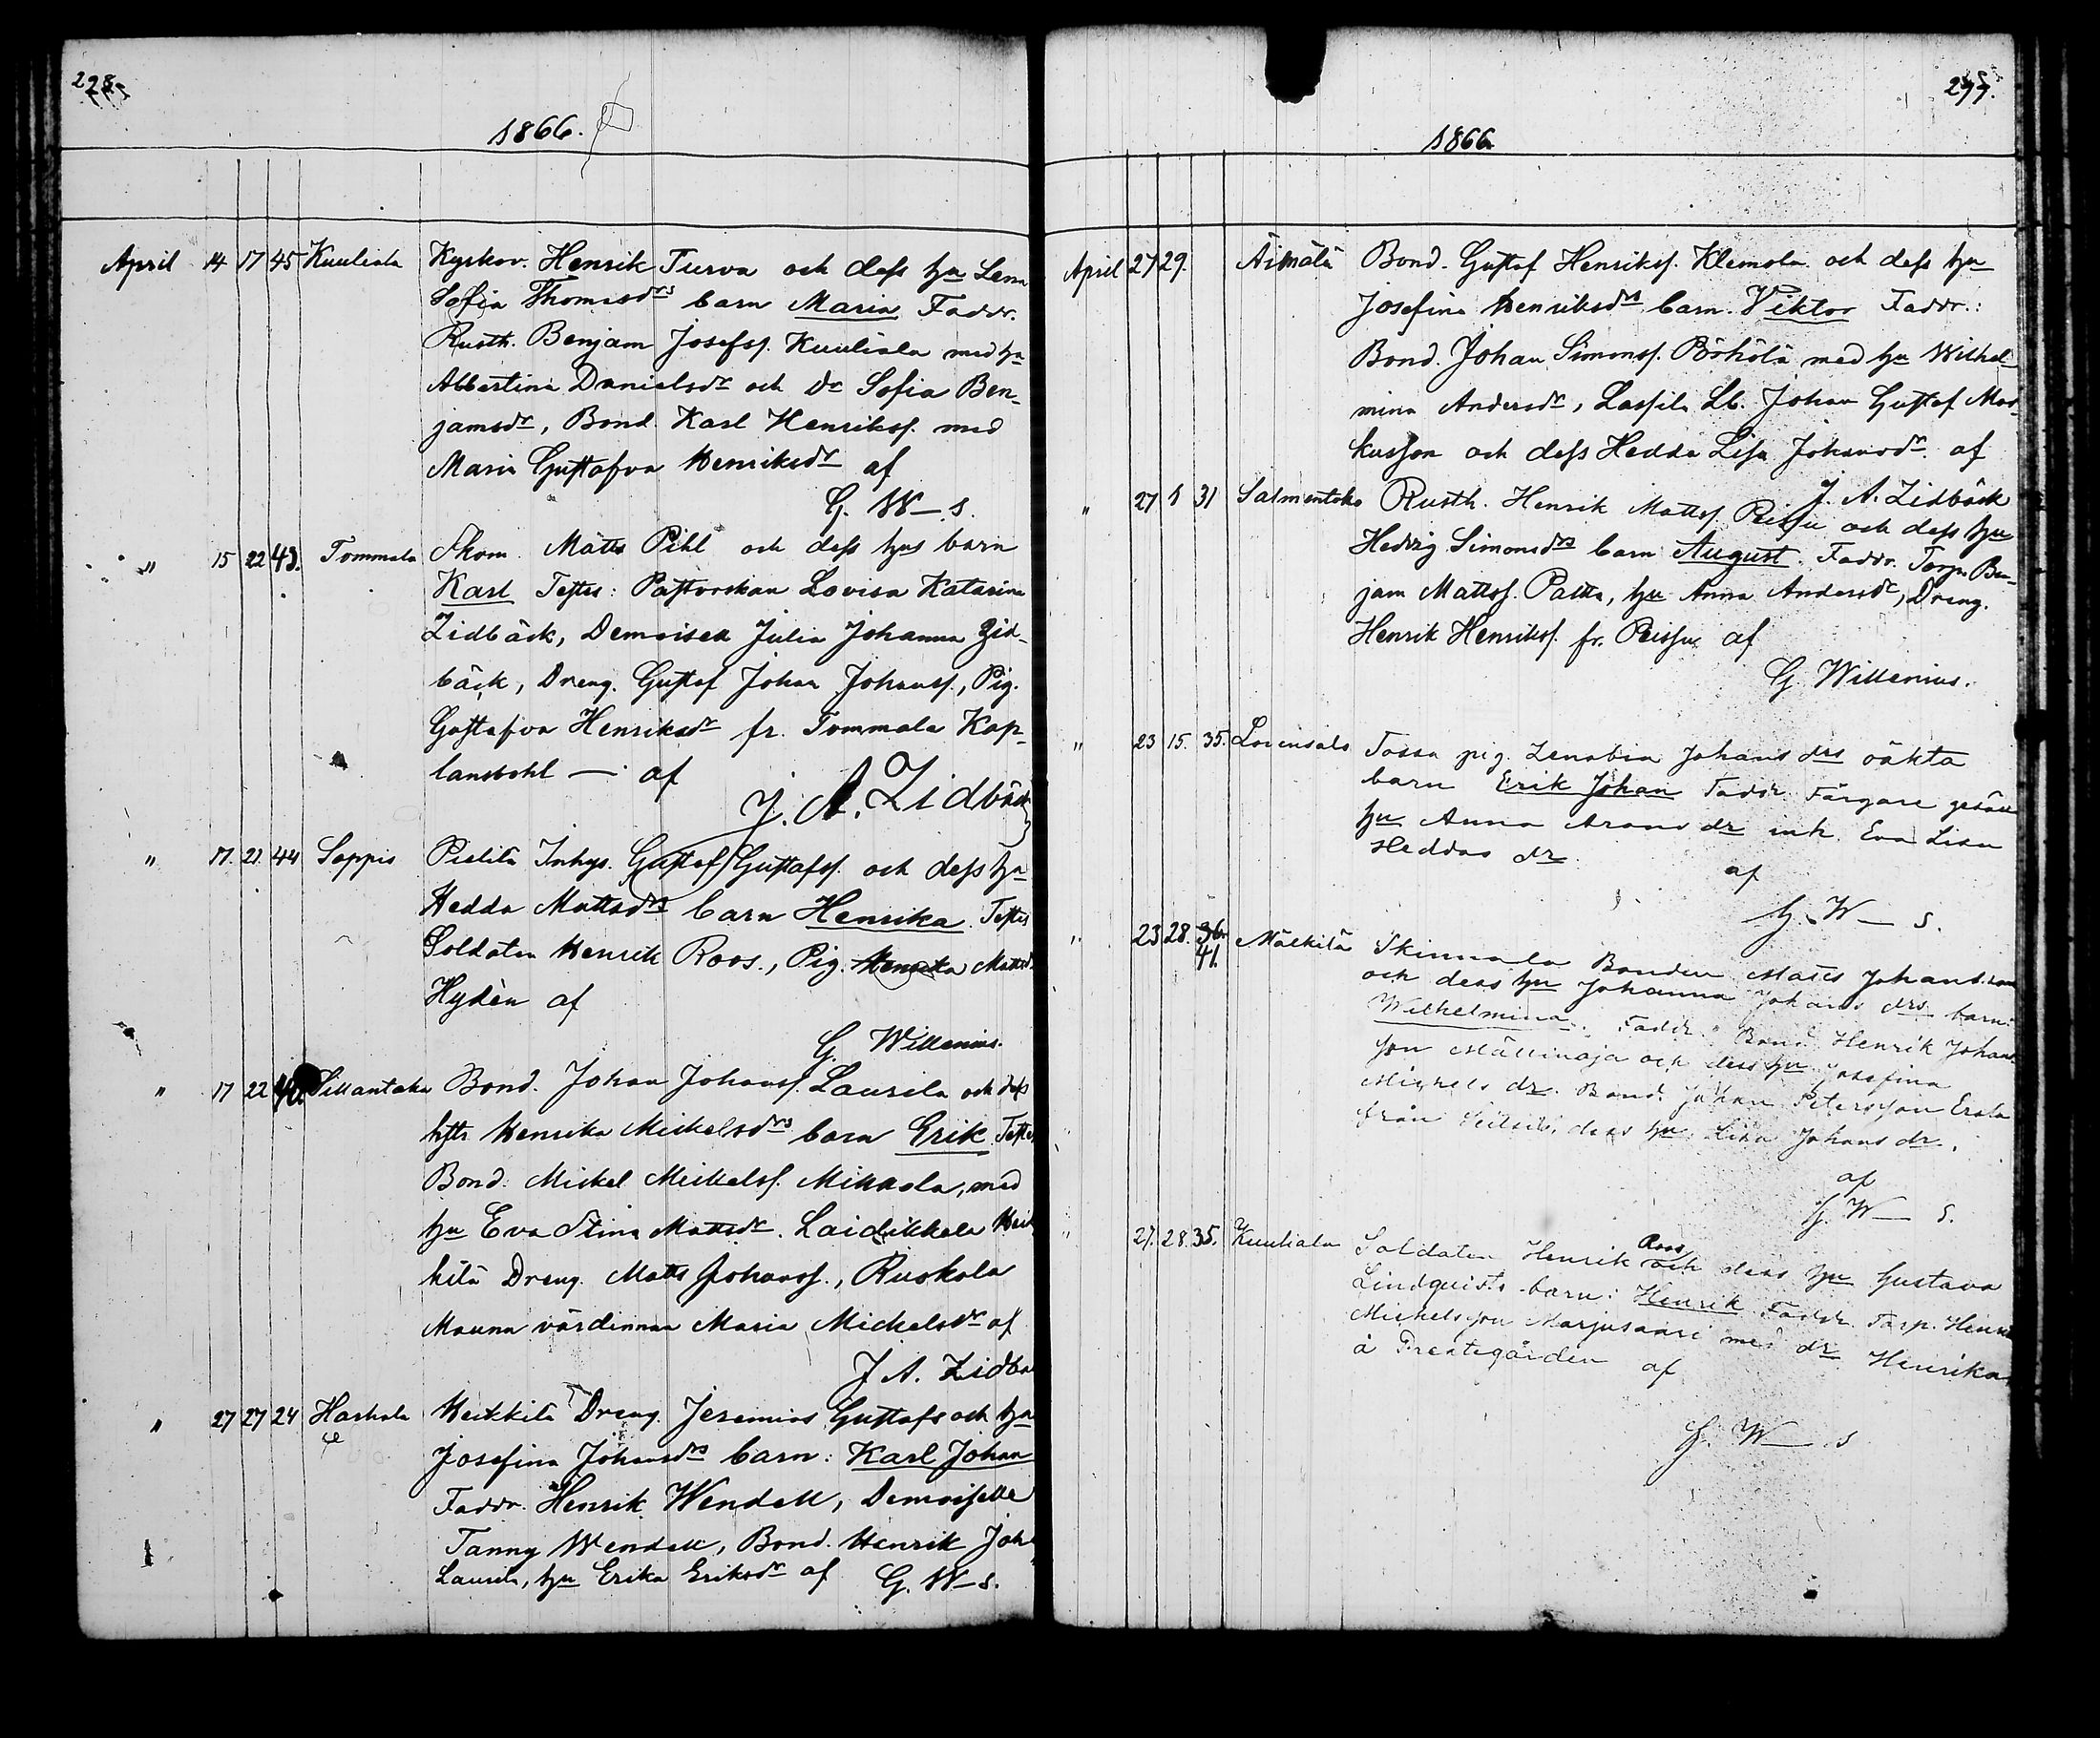 228.
1866.
April 14 17 45 Kuuliala Kyrkov. Henrik Turva och dess hu Lena
Sofia Thomasdrs barn Maria Faddr.
Rusth. Benjam Josefss. Kuuliala med hu
Albertina Danielsdr och dr Sofia Ben-
jamsdr, Bond Karl Henrikss. med
Maria Gustafva Henriksdr af
G. W—s.
" 15 22 43. Tommala Skom. Matts Pihl och dess hus barn
Karl Testes: Pastorskan Lovisa Katarina
Zidbäck, Demoisell Julia Johanna Zid-
bäck, Dreng. Gustaf Johan Johanss., Pig.
Gustafva Henriksdr fr. Tommala Kap-
lansbohl — af
J. A. Zidbäck
" 17. 21. 44 Seppis Pietilä Inhys. Gustaf Gustafss. och dess hu
Hedda Mattsdrs barn Henrika. Testes
Soldaten Henrik Roos., Pig. Henrika Mattsd.
Hydèn af
G. Willenius.
" 17 22 40. Sillantaka Bond. Johan Johanss. Laurila och dess
hstr Henrika Mickelsdrs barn Erik Testes
Bond. Mickel Mickelss. Mikkola, med
hu Eva Stina Mattsdr. Laidikkala Heik
kilä Dreng. Matts Johanss., Ruskola
Mauna värdinnan Maria Mickelsdr af
J A. Zidbä
" 27 27 24 Harhala Heikkilä Dreng. Jeremias Gustafs och hu
Josefina Johansdrs barn: Karl Johan
Faddr. Henrik Wendell, Demoiselle
Fanny Wendell, Bond. Henrik Joh
Laurila, hu Erika Eriksdr af G. W—s.
277.
1866.
April 27 29. Äimälä Bond. Gustaf Henrikss. Klemola och dess hu
Josefina Henriksdrs barn. Viktor Faddr.:
Bond. Johan Simonss. Pörhölä med hu Wilhel-
mina Andersdr, Lassila Lb. Johan Gustaf Mar-
kusson och dess Hedda Lisa Johansdr. af
J. A. Zidbäck
" 27 1 31 Salmentaka Rusth. Henrik Mattss. Peissu och dess hu
Hedvig Simonsdrs barn August. Faddr. Torp. Ben-
jam Mattss. Paltta, hu Anna Andersdr, Dreng.
Henrik Henrikss. fr. Peissu af
G. Willenius.
" 23 15. 35. Lovensalo Tossa pig. Zenobia Johans drs oäkta
barn Erik Johan Faddr. Färgare gesäll
hu Anna Arons dr inh. Eva Lisa
Heddas dr.
af
G. W— s.
" 23 28. 36. 41. Mälkilä Skinnala Bonden Matts Johansson
och dess hu Johanna Johans drs barn:
Wilhelmina. Faddr. Bond Henrik Johans
son Mällinoja och dess hu Josefina
Michels dr. Bond. Johan Petersson Erola
från dess hu Lisa Johans dr.
af
G. W— s.
" 27. 28. 35. Kuuliala Soldaten Henrik Roos och dess hu Gustava
Lindquists barn: Henrik Faddr. Torp. Henrik
Michelsson Marjusaari med dr Henrika
å Prestegården af
G. W— s